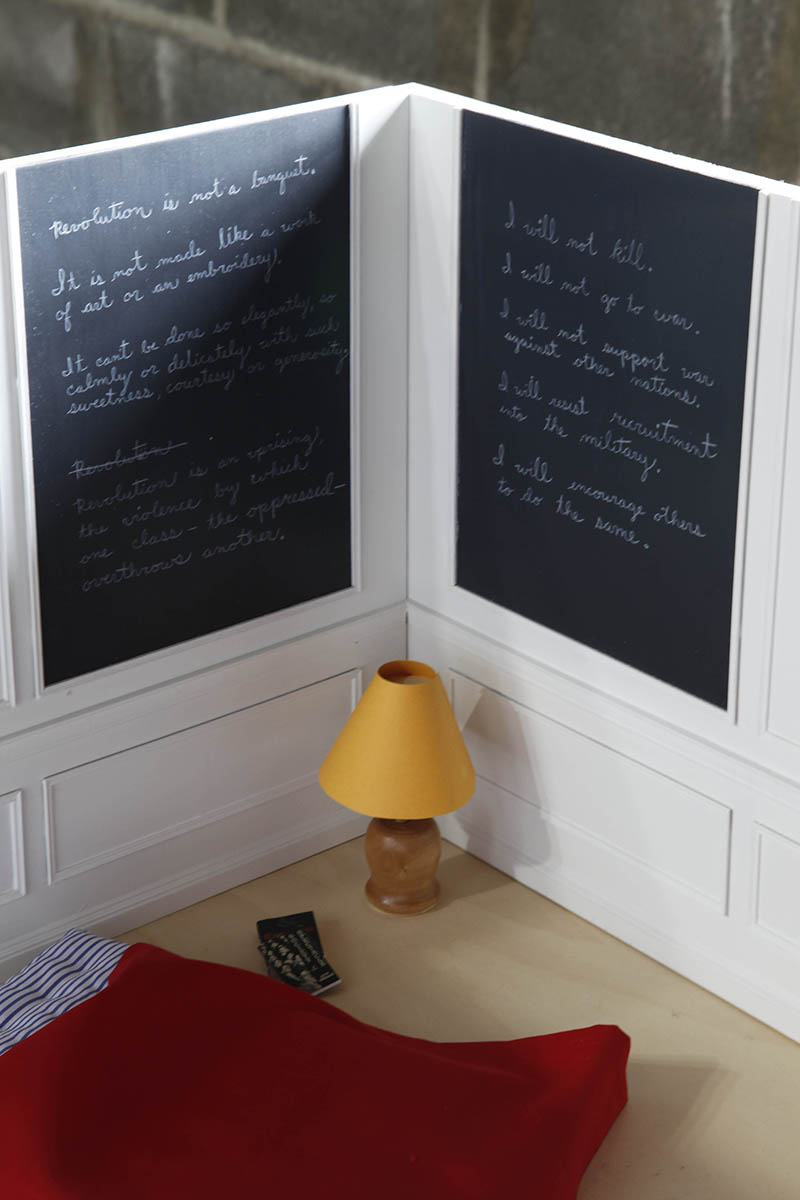 Revolution is not a banquet.
It is not made like a work
of art or an embroidery.
It cant be done so elegantly, so
calmly or delicately with such
sweetness, courtesy or generosity.
Revolution
Revolution is an uprising,
the violence by which
one class – the oppressed –
overthrows another.
I will not kill.
I will not go to war.
I will not support war
against other nations.
I will resist recruitment
into the military.
I will encourage others
to do the same.